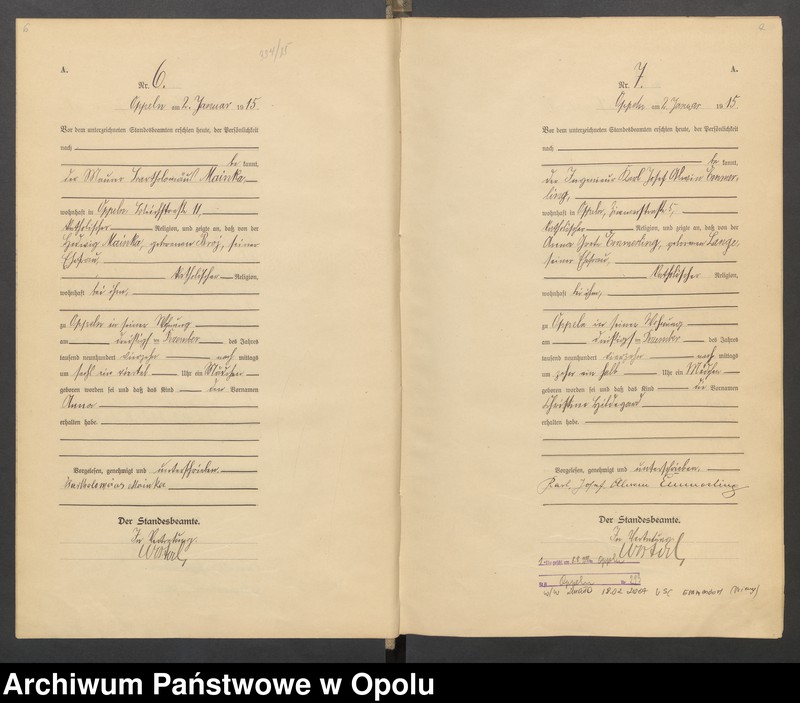 6
334/15
A.
Nr. 6.
Oppeln am 2. Januar 1915.
Vor dem unterzeichneten Standesbeamten erschien heute, der Persönlichkeit
nach
be kannt,
der Maurer Bartholomäus Mainka,
wohnhaft in Oppeln
11,
katholischer Religion, und zeigte an, daß von der
Hedwig Mainka, geborenen
seiner
Ehefrau
katholischer Religion,
wohnhaft bei ihm,
zu Oppeln in seiner Wohnung
am dreißigsten Dezember des Jahres
tausend neunhundert vierzehn nach mittags
um sechs ein viertel Uhr ein Mädchen
geboren worden sei und daß das Kind den Vornamen
Anna
erhalten habe.
Vorgelesen, genehmigt und unterschrieben.
Bartholomäus Mainka
Der Standesbeamte.
In Vertretung.
A.
Nr. 7.
Oppeln am 2. Januar 1915
Vor dem unterzeichneten Standesbeamten erschien heute, der Persönlichkeit
nach
be kannt,
der Ingenieur Karl Josef Alwin Emmer-
ling,
wohnhaft in Oppeln,
5,
katholischer Religion, und zeigte an, daß von der
Anna
Emmerling, geborenen Lange,
seiner Ehefrau,
katholischer Religion,
wohnhaft bei ihm,
zu Oppeln in seiner Wohnung
am dreißigsten Dezember des Jahres
tausend neunhundert vierzehn nach mittags
um zehn ein halb Uhr ein Mädchen
geboren worden sei und daß das Kind die Vornamen
Christine Hildegard
erhalten habe.
Vorgelesen, genehmigt und unterschrieben.
Karl Josef Alwin Emmerling
Der Standesbeamte.
In Vertretung.
Oppeln
Oppeln
18.02 2004 USC
Archiwum Państwowe w Opolu